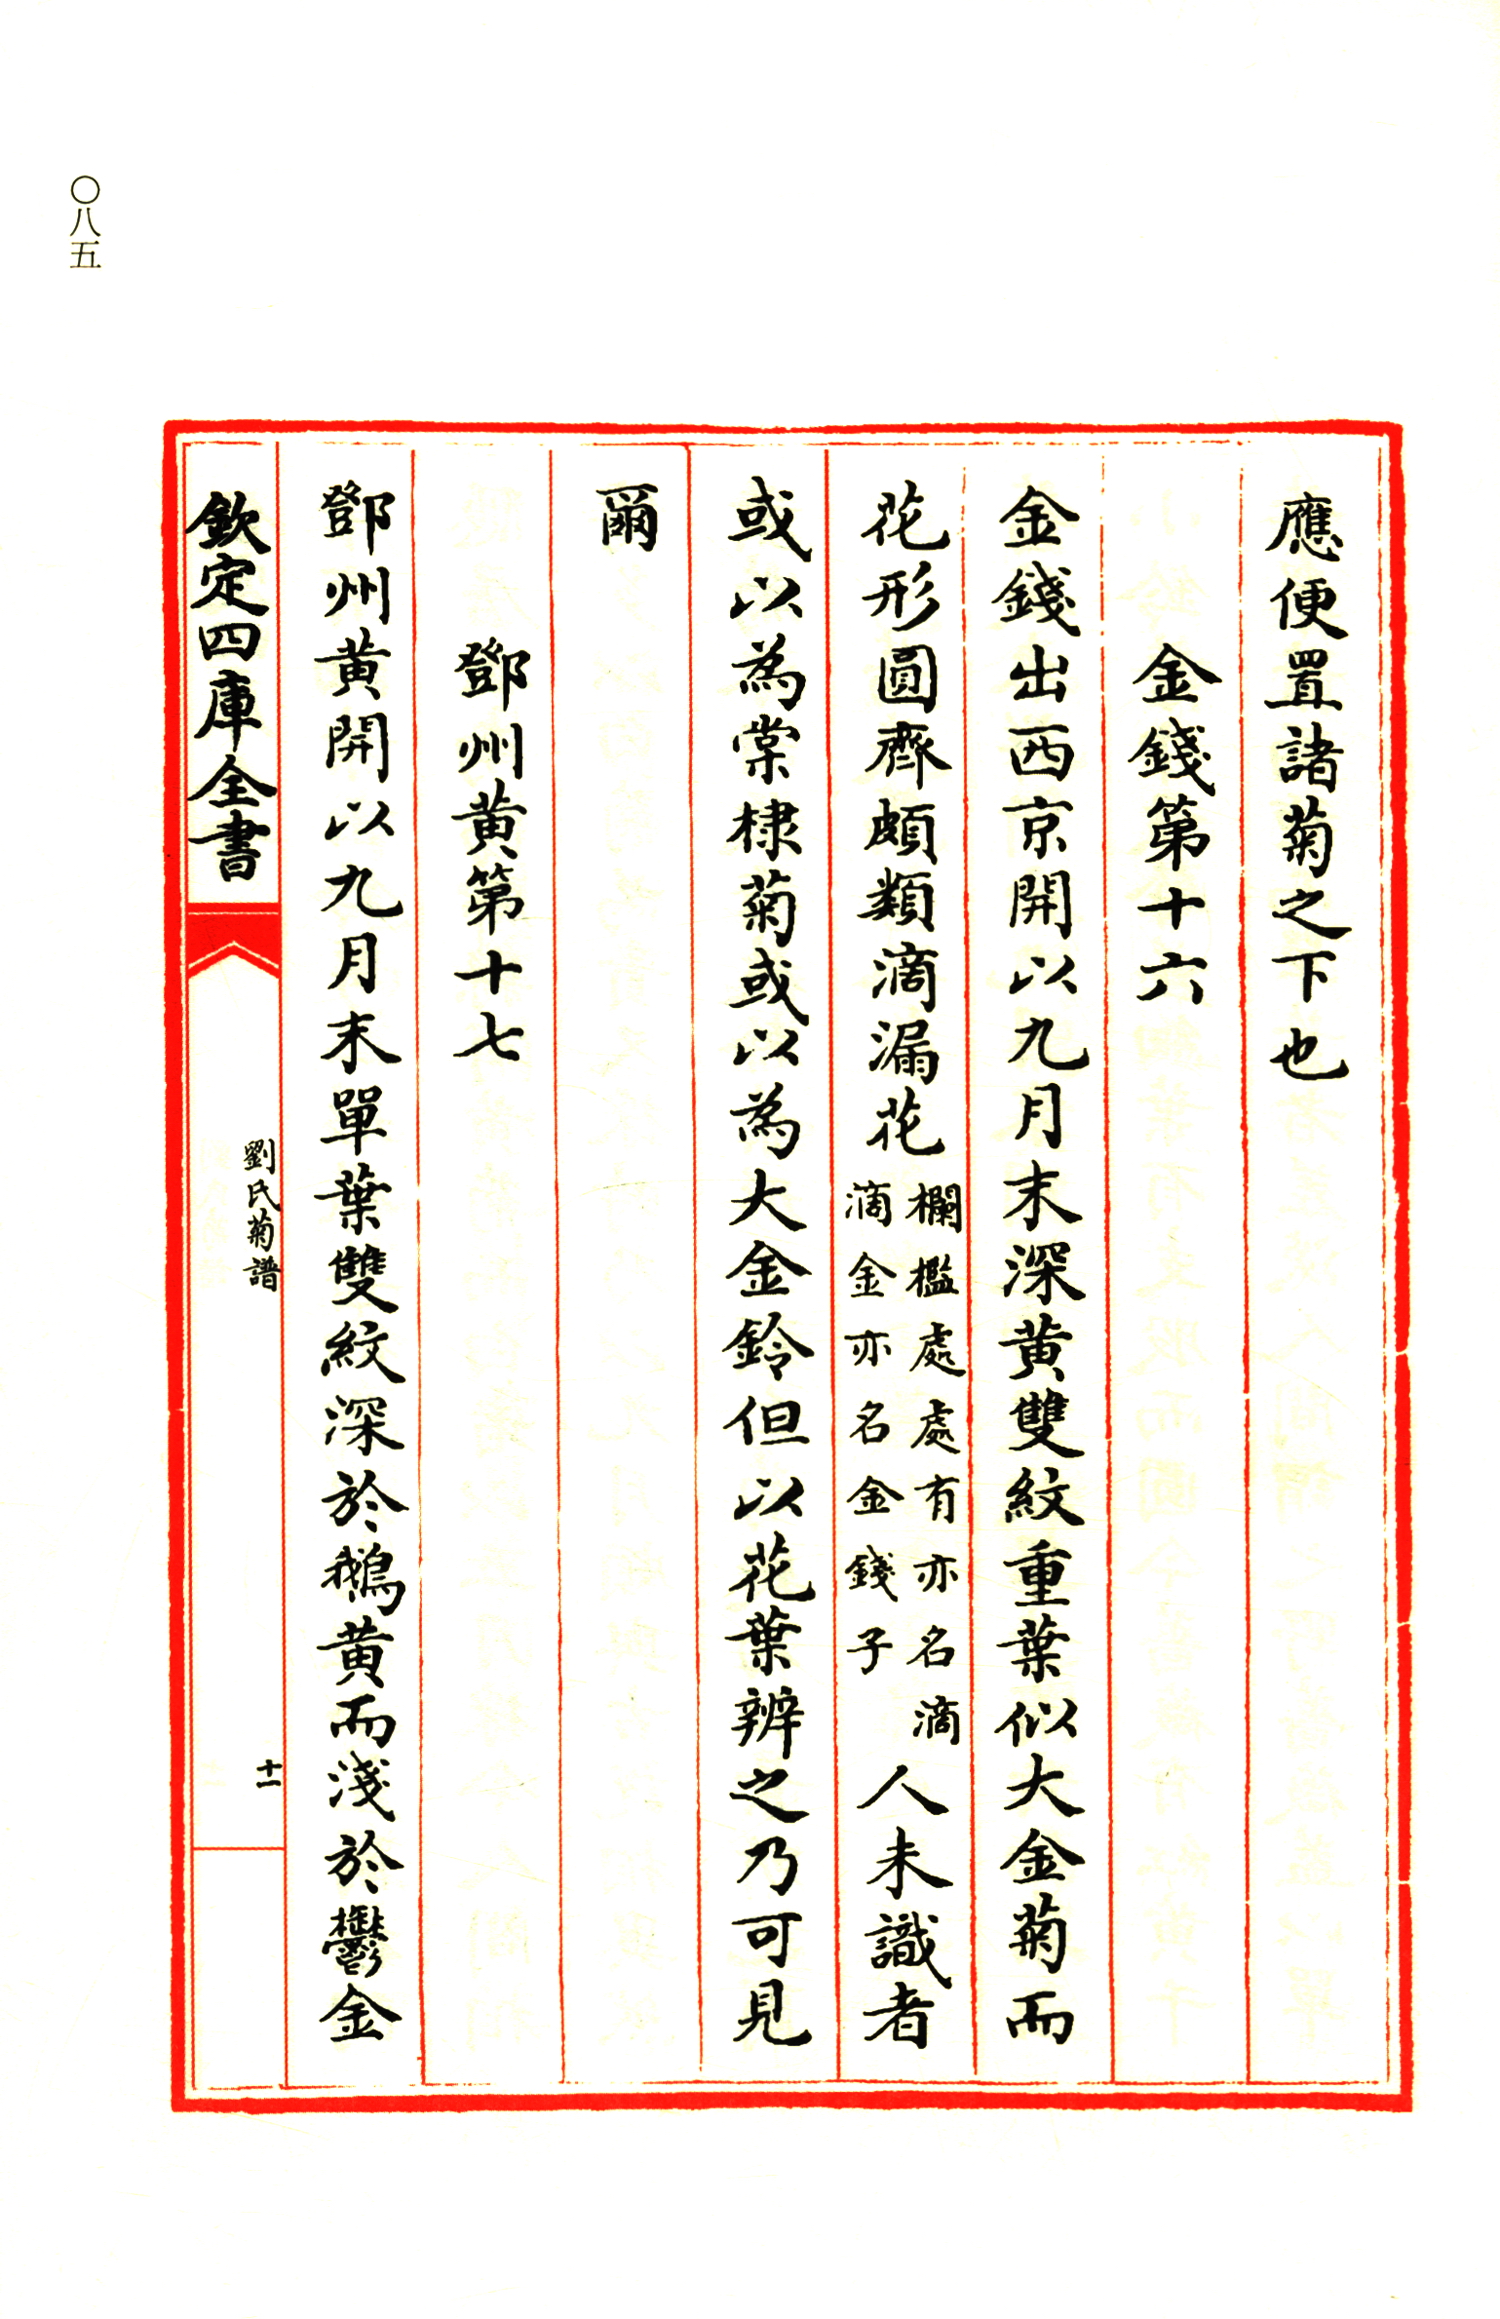 應便置諸菊之下也
金錢第十六
金錢出西京開以九月末深黃雙紋重葉似大金菊而
花形圓齊頗類滴漏花欄檻處處有亦名滴滴金亦名金錢子人未識者
或以為棠棣菊或以為大金鈴但以花葉辨之乃可見
爾
鄧州黃第十七
鄧州黃開以九月末單葉雙紋深於鵝黃而淺於鬱金
欽定四庫全書
劉氏菊譜
十一
〇八五